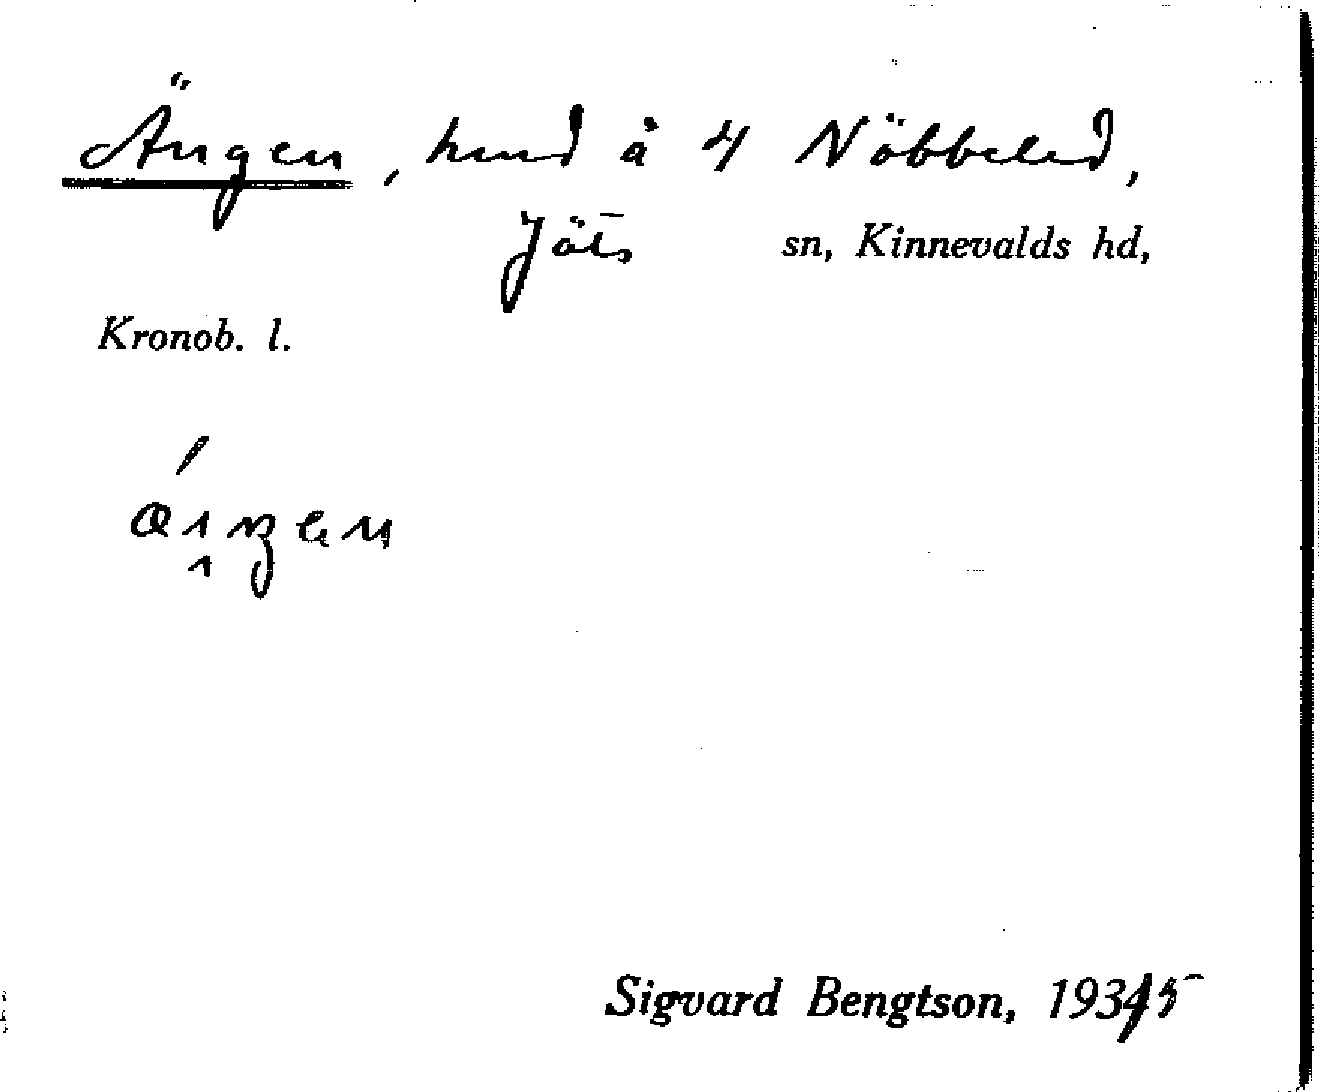 Ängen, hmd å 4 Nöbbeled,
Jäts sn, Kinnevalds hd,
Kronob. l.
Sigvard Bengtson, 1935